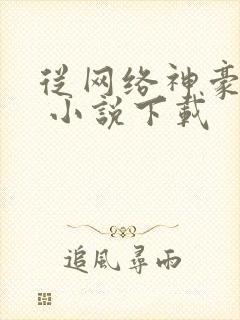 从网络神豪
小説下載
追風尋雨